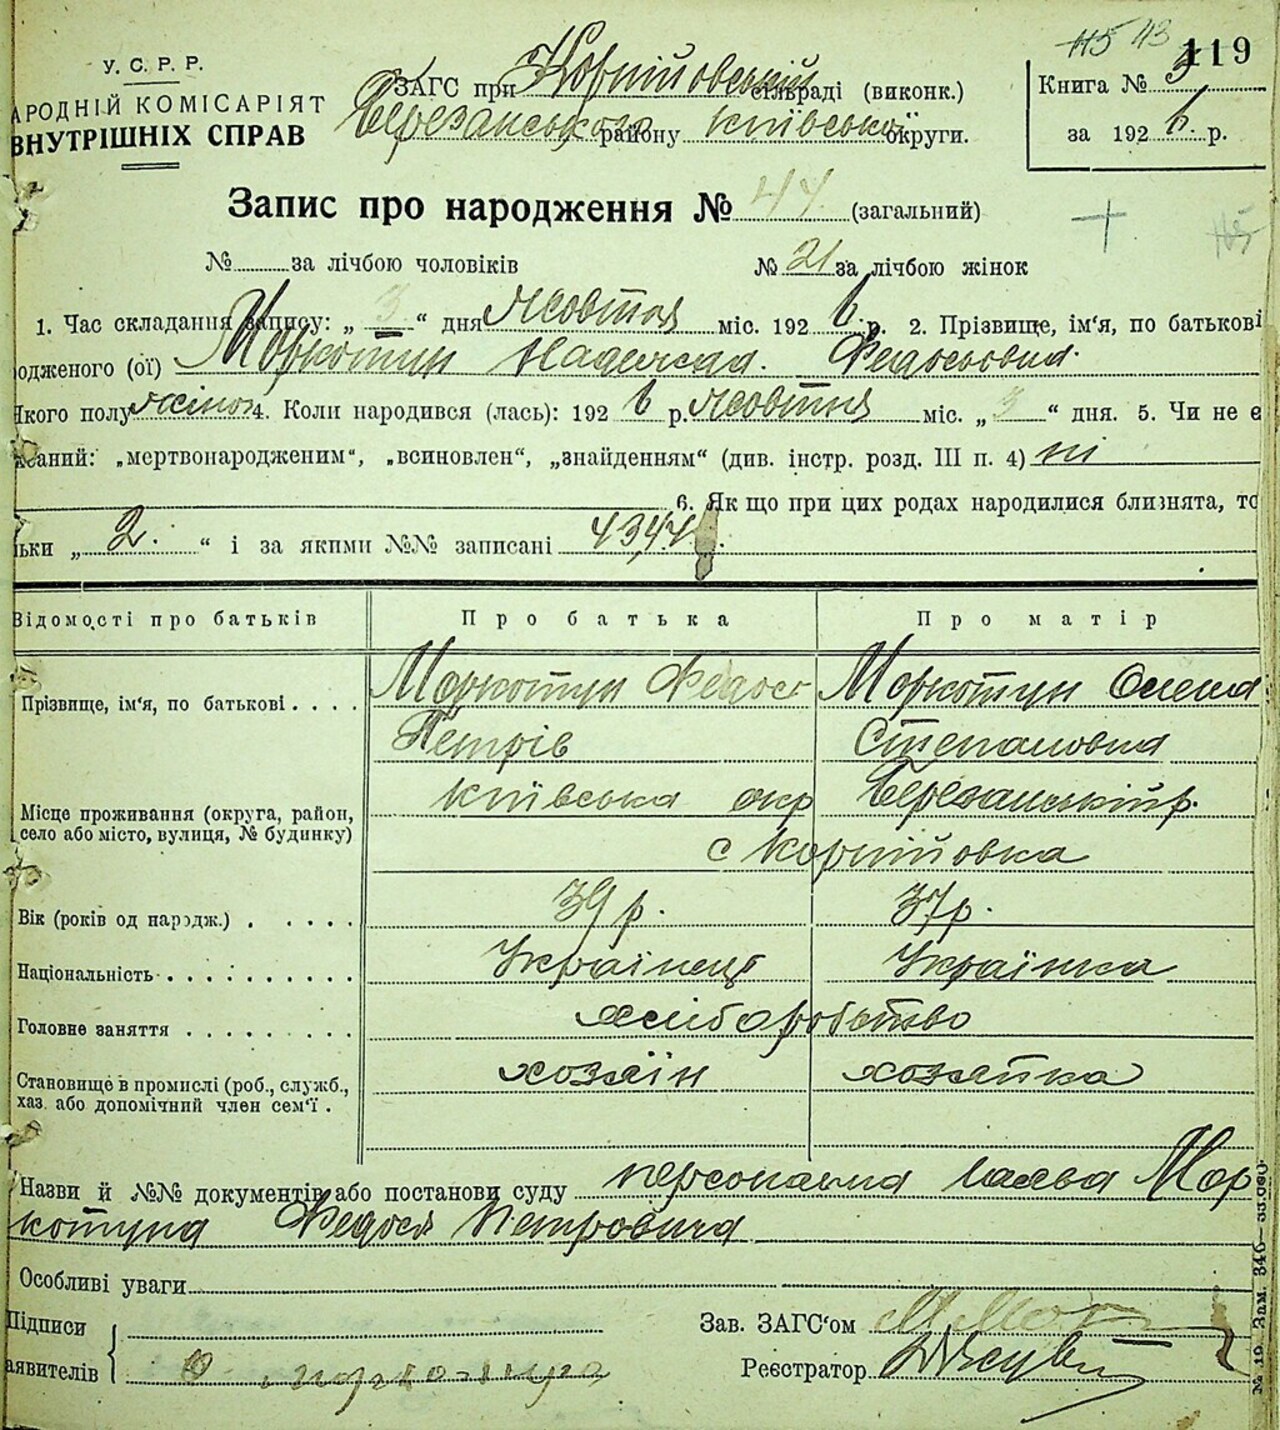 115 113 119
У. С. Р. Р.
АРОДНІЙ КОМІСАРІЯТ
ВНУТРІШНІХ СПРАВ
ЗАГС при Корнійовській сільраді (виконк.)
Березанського району Київської округи.
Книга № 3
за 192 6 р.
Запис про народження № 44 (загальний)
№ за лічбою чоловіків № 21 за лічбою жінок
1. Час складання запису: „ 3 “ дня Жовтня міс. 192 6 р. 2. Прізвище, ім'я, по батькові
одженого (ої) Моркотун Надежда. Федосьовна.
Якого полу жіноч 4. Коли народився (лась): 192 6 р. Жовтня міс. „ 3 “ дня. 5. Чи не є
саний: „мертвонародженим“, „всиновлен“, „знайденням“ (див. інстр. розд. III п. 4) ні
6. Як що при цих родах народилися близнята, то
ьки „ 2. “ і за якими №№ записані 43,44
Відомості про батьків Про батька Про матір
Прізвище, ім'я, по батькові Моркотун Федос Моркотун Олена
Петрів Степановна
Місце проживання (округа, район, село або місто, вулиця, № будинку) Київська окр Березанський р.
с Корнійовка
Вік (років од народж.) 39 р. 37 р.
Національність Українець Українка
Головне заняття хліборобство
Становище в промислі (роб., служб., хаз. або допомічний член сем'ї. хозяїн хозяйка
Назви й №№ документів або постанови суду персональна заява Мор
котуна Федося Петровича
Особливі уваги
Підписи
аявителів
Зав. ЗАГС'ом
Реєстратор
№ 19. Зам. 346—33.000.